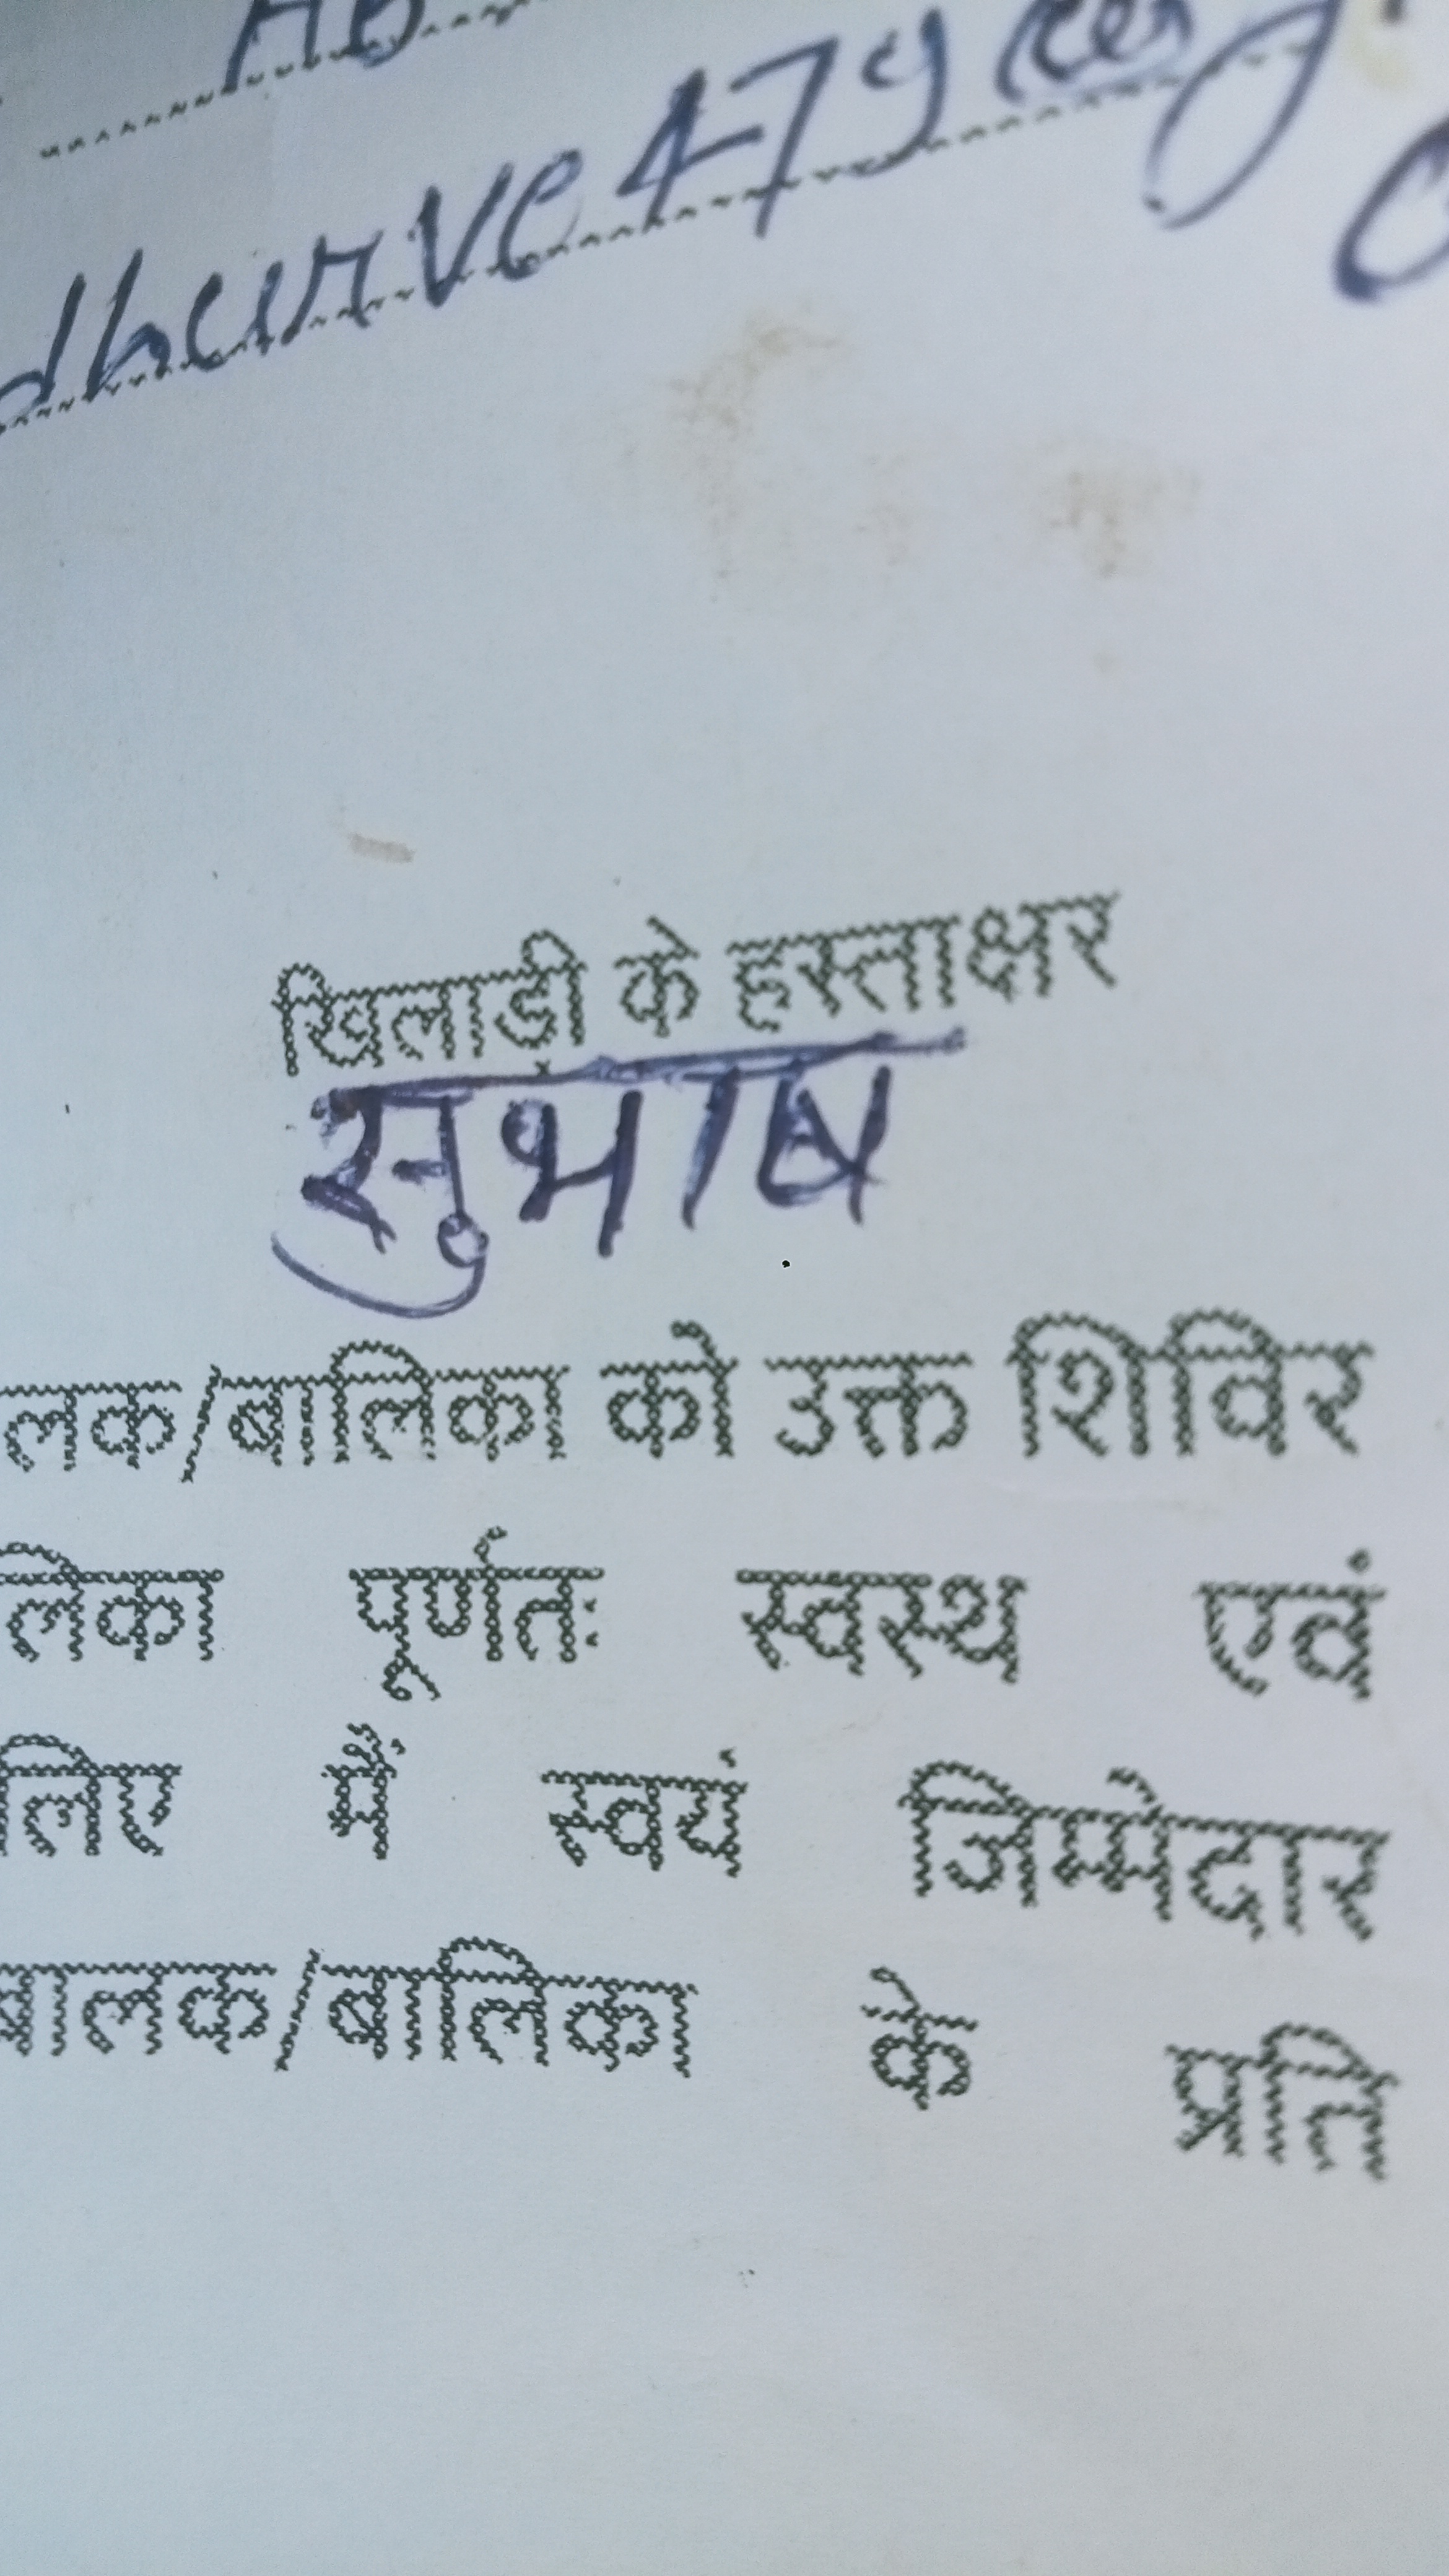 dhurve479
खिलाड़ी के हस्ताक्षर
सुभाष
लक/बालिका को उक्त शिविर
लिका पूर्णतः स्वस्थ एवं
लिए मैं स्वयं जिम्मेदार
बालक/बालिका के प्रति